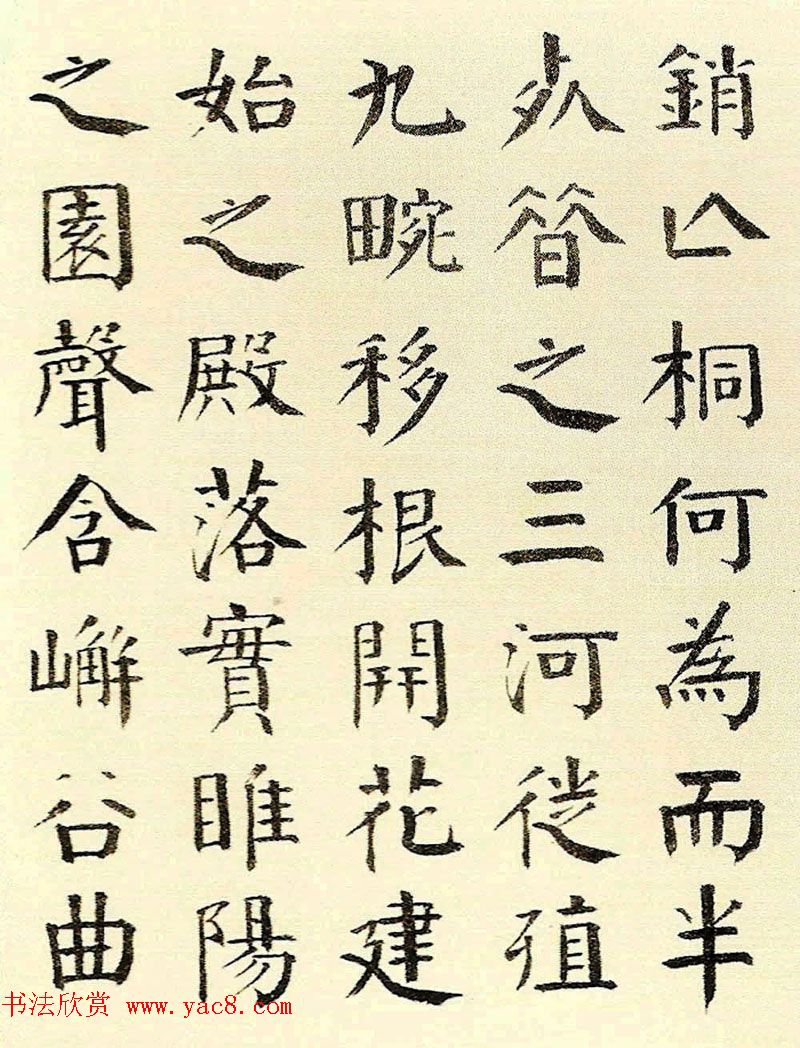 銷亾桐何為而半
死㫺之三河徙殖
九畹移根開花建
始之殿落實睢陽
之園聲含嶰谷曲
书法欣赏 www.yac8.com